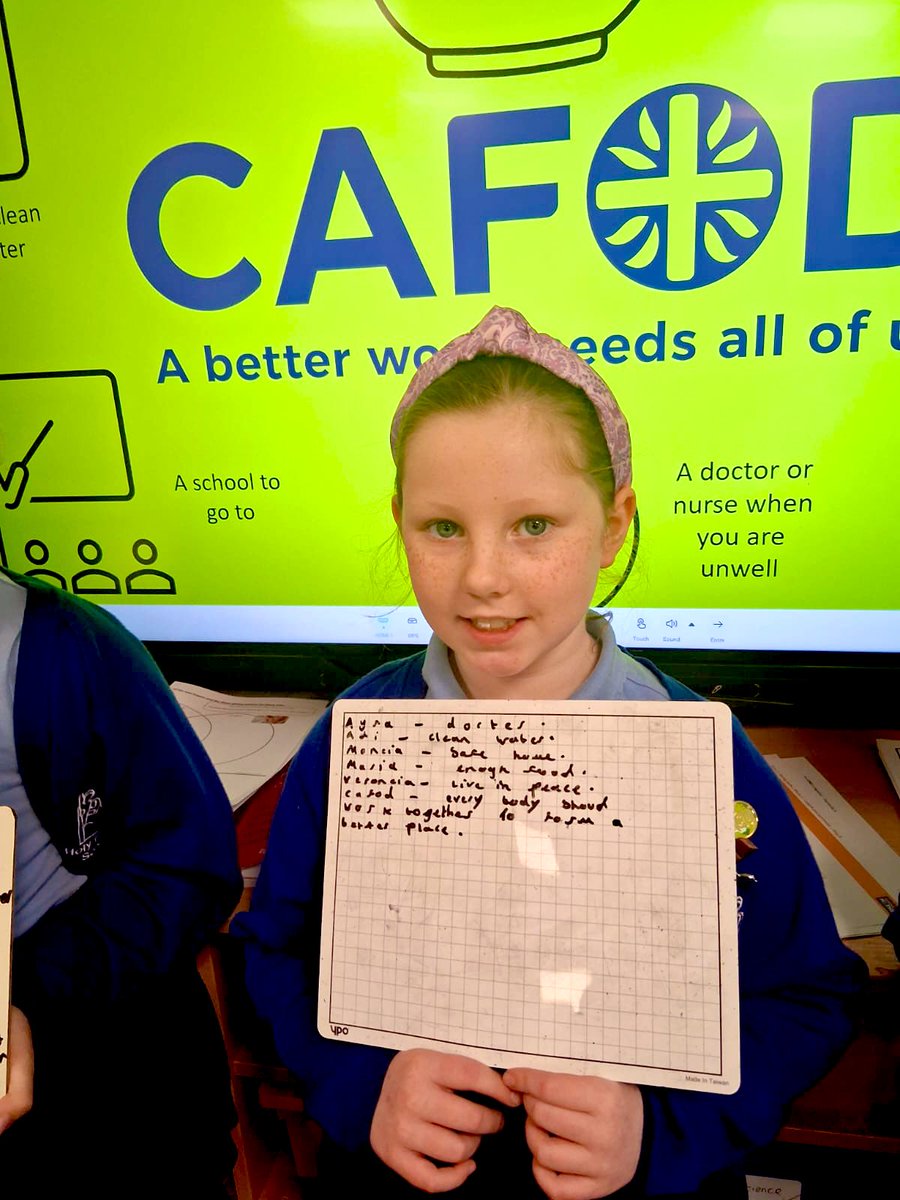 CAFOD
A better wo eeds all of u
lean
ter
A school to
go to
A doctor or
nurse when
you are
unwell
Touch
Sound
Aysa - docter.
Adi - clean water.
Moncia - Safe home.
Masid - enogh food.
Veroncia - Live in peace.
Cafod - every body shoud
work together to form a
better place.
ypo
Made in Taiwan
Holy
S
ience